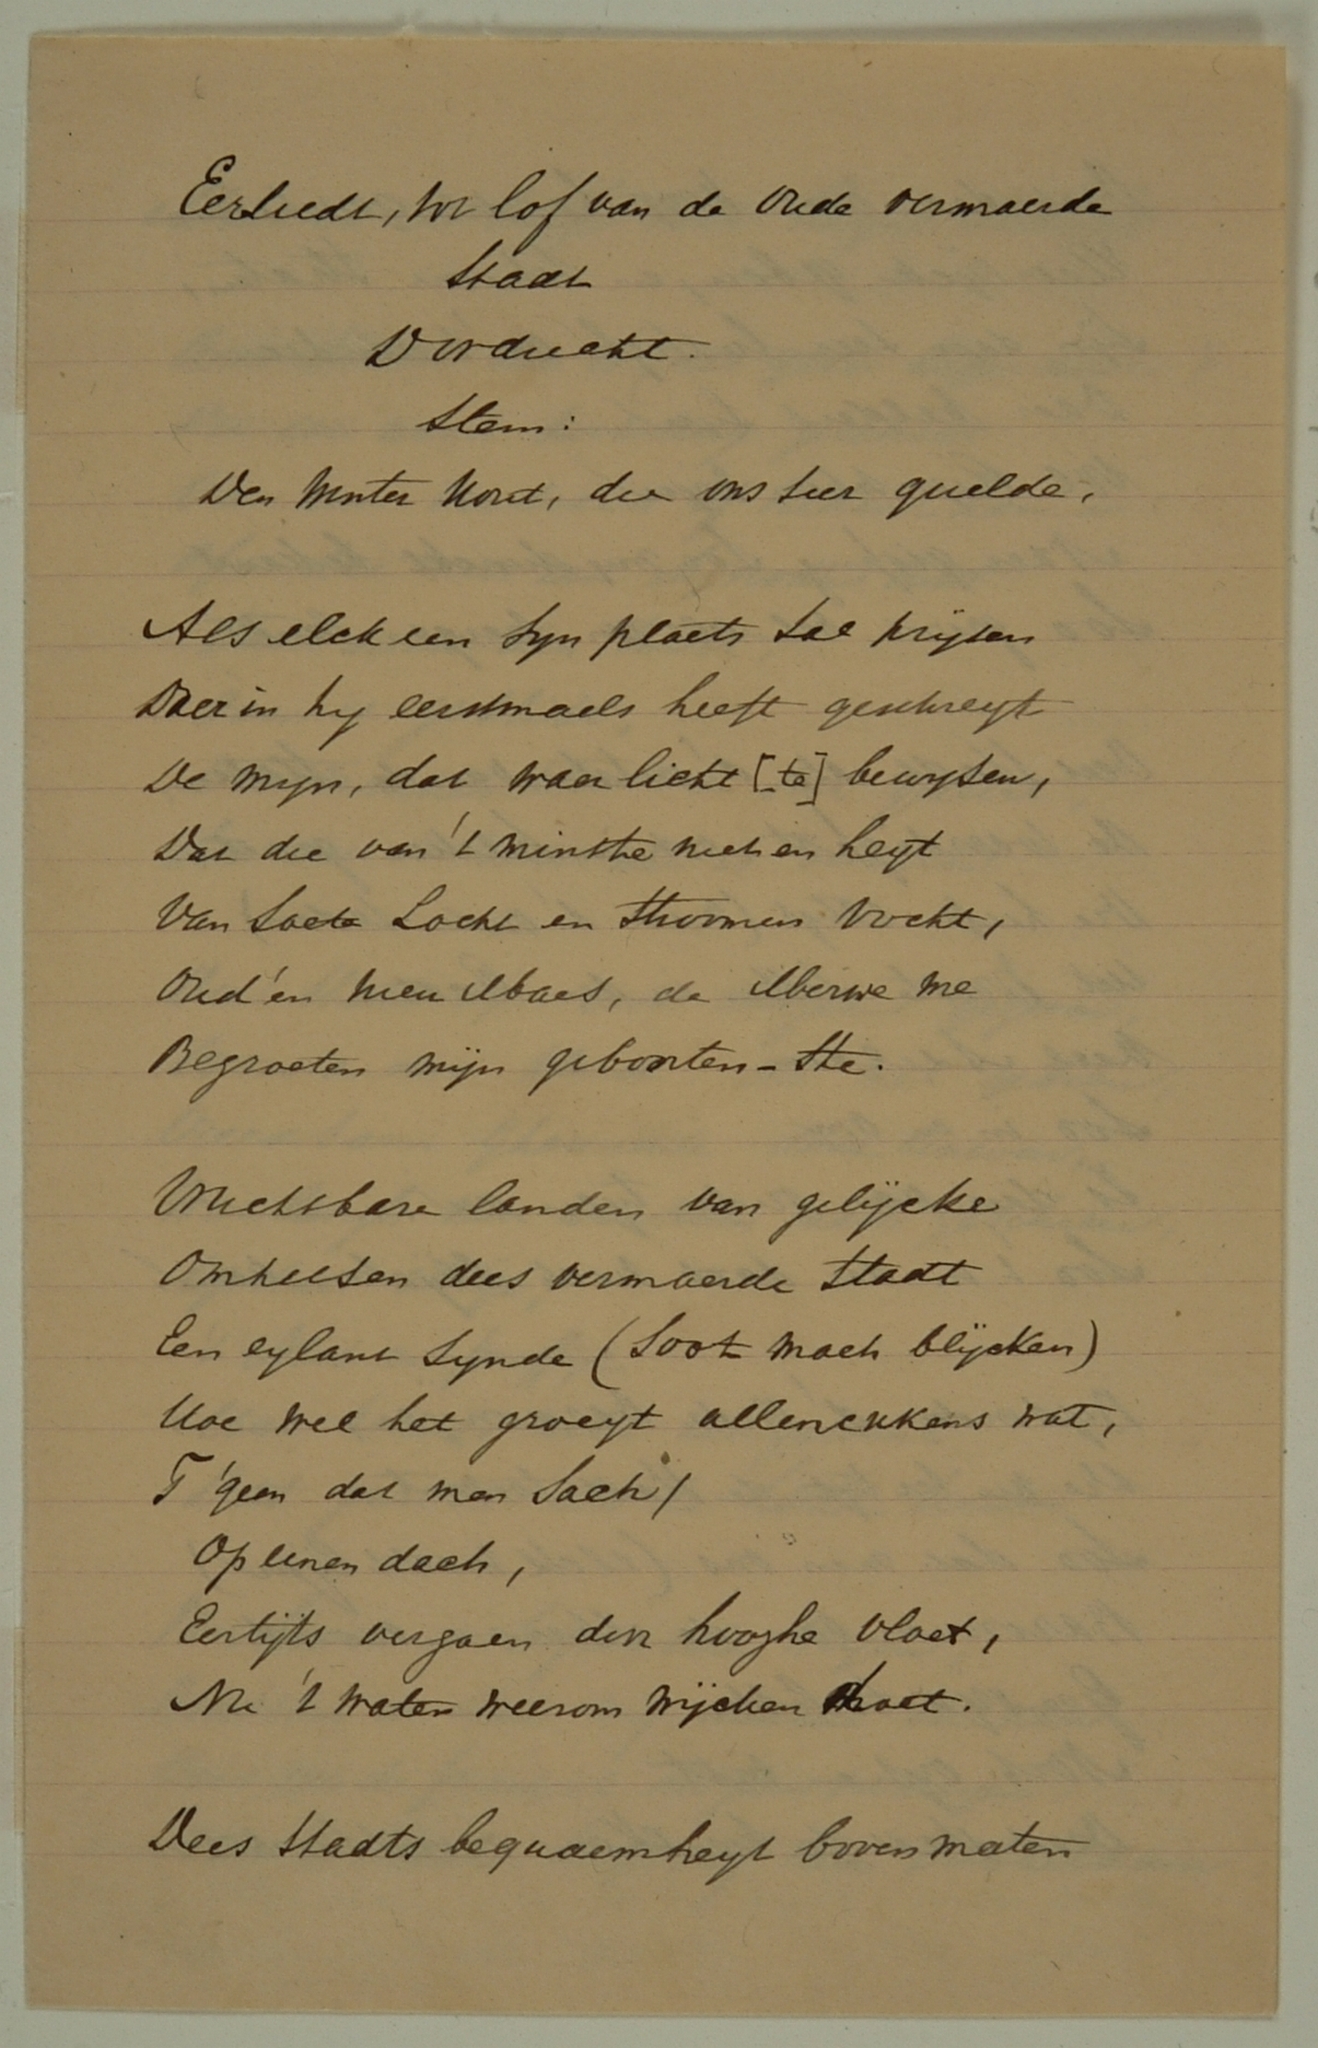 Eerliedt, tot lof van de oude vermaerde
Stadt
Dordrecht.
Stem:
Den winter kout, die ons seer quelde,
Als elck een syn plaets sal prijsen
Daer in hy eerstmaels heeft geschreyt
De myn, dat waer licht [te] bewysen,
Dat die van 't minste niet en heyt
Van soete Locht en Stroomen vocht,
Oud' en nieu Maes, de Merwe me
Begroeten mijn geboorten-Ste.
Vruchtbare landen van gelijcke
Omhelsen dees vermaerde Stadt
Een eylant synde (soot mach blijcken)
Hoe wel het groeyt allenckkens wat,
T'geen dat men sach,
Op eenen dach,
Eertijts vergaen door hooghe vloet,
Nu 't water weerom wijcken moet.
Dees Stadts bequaemheyt boven maten